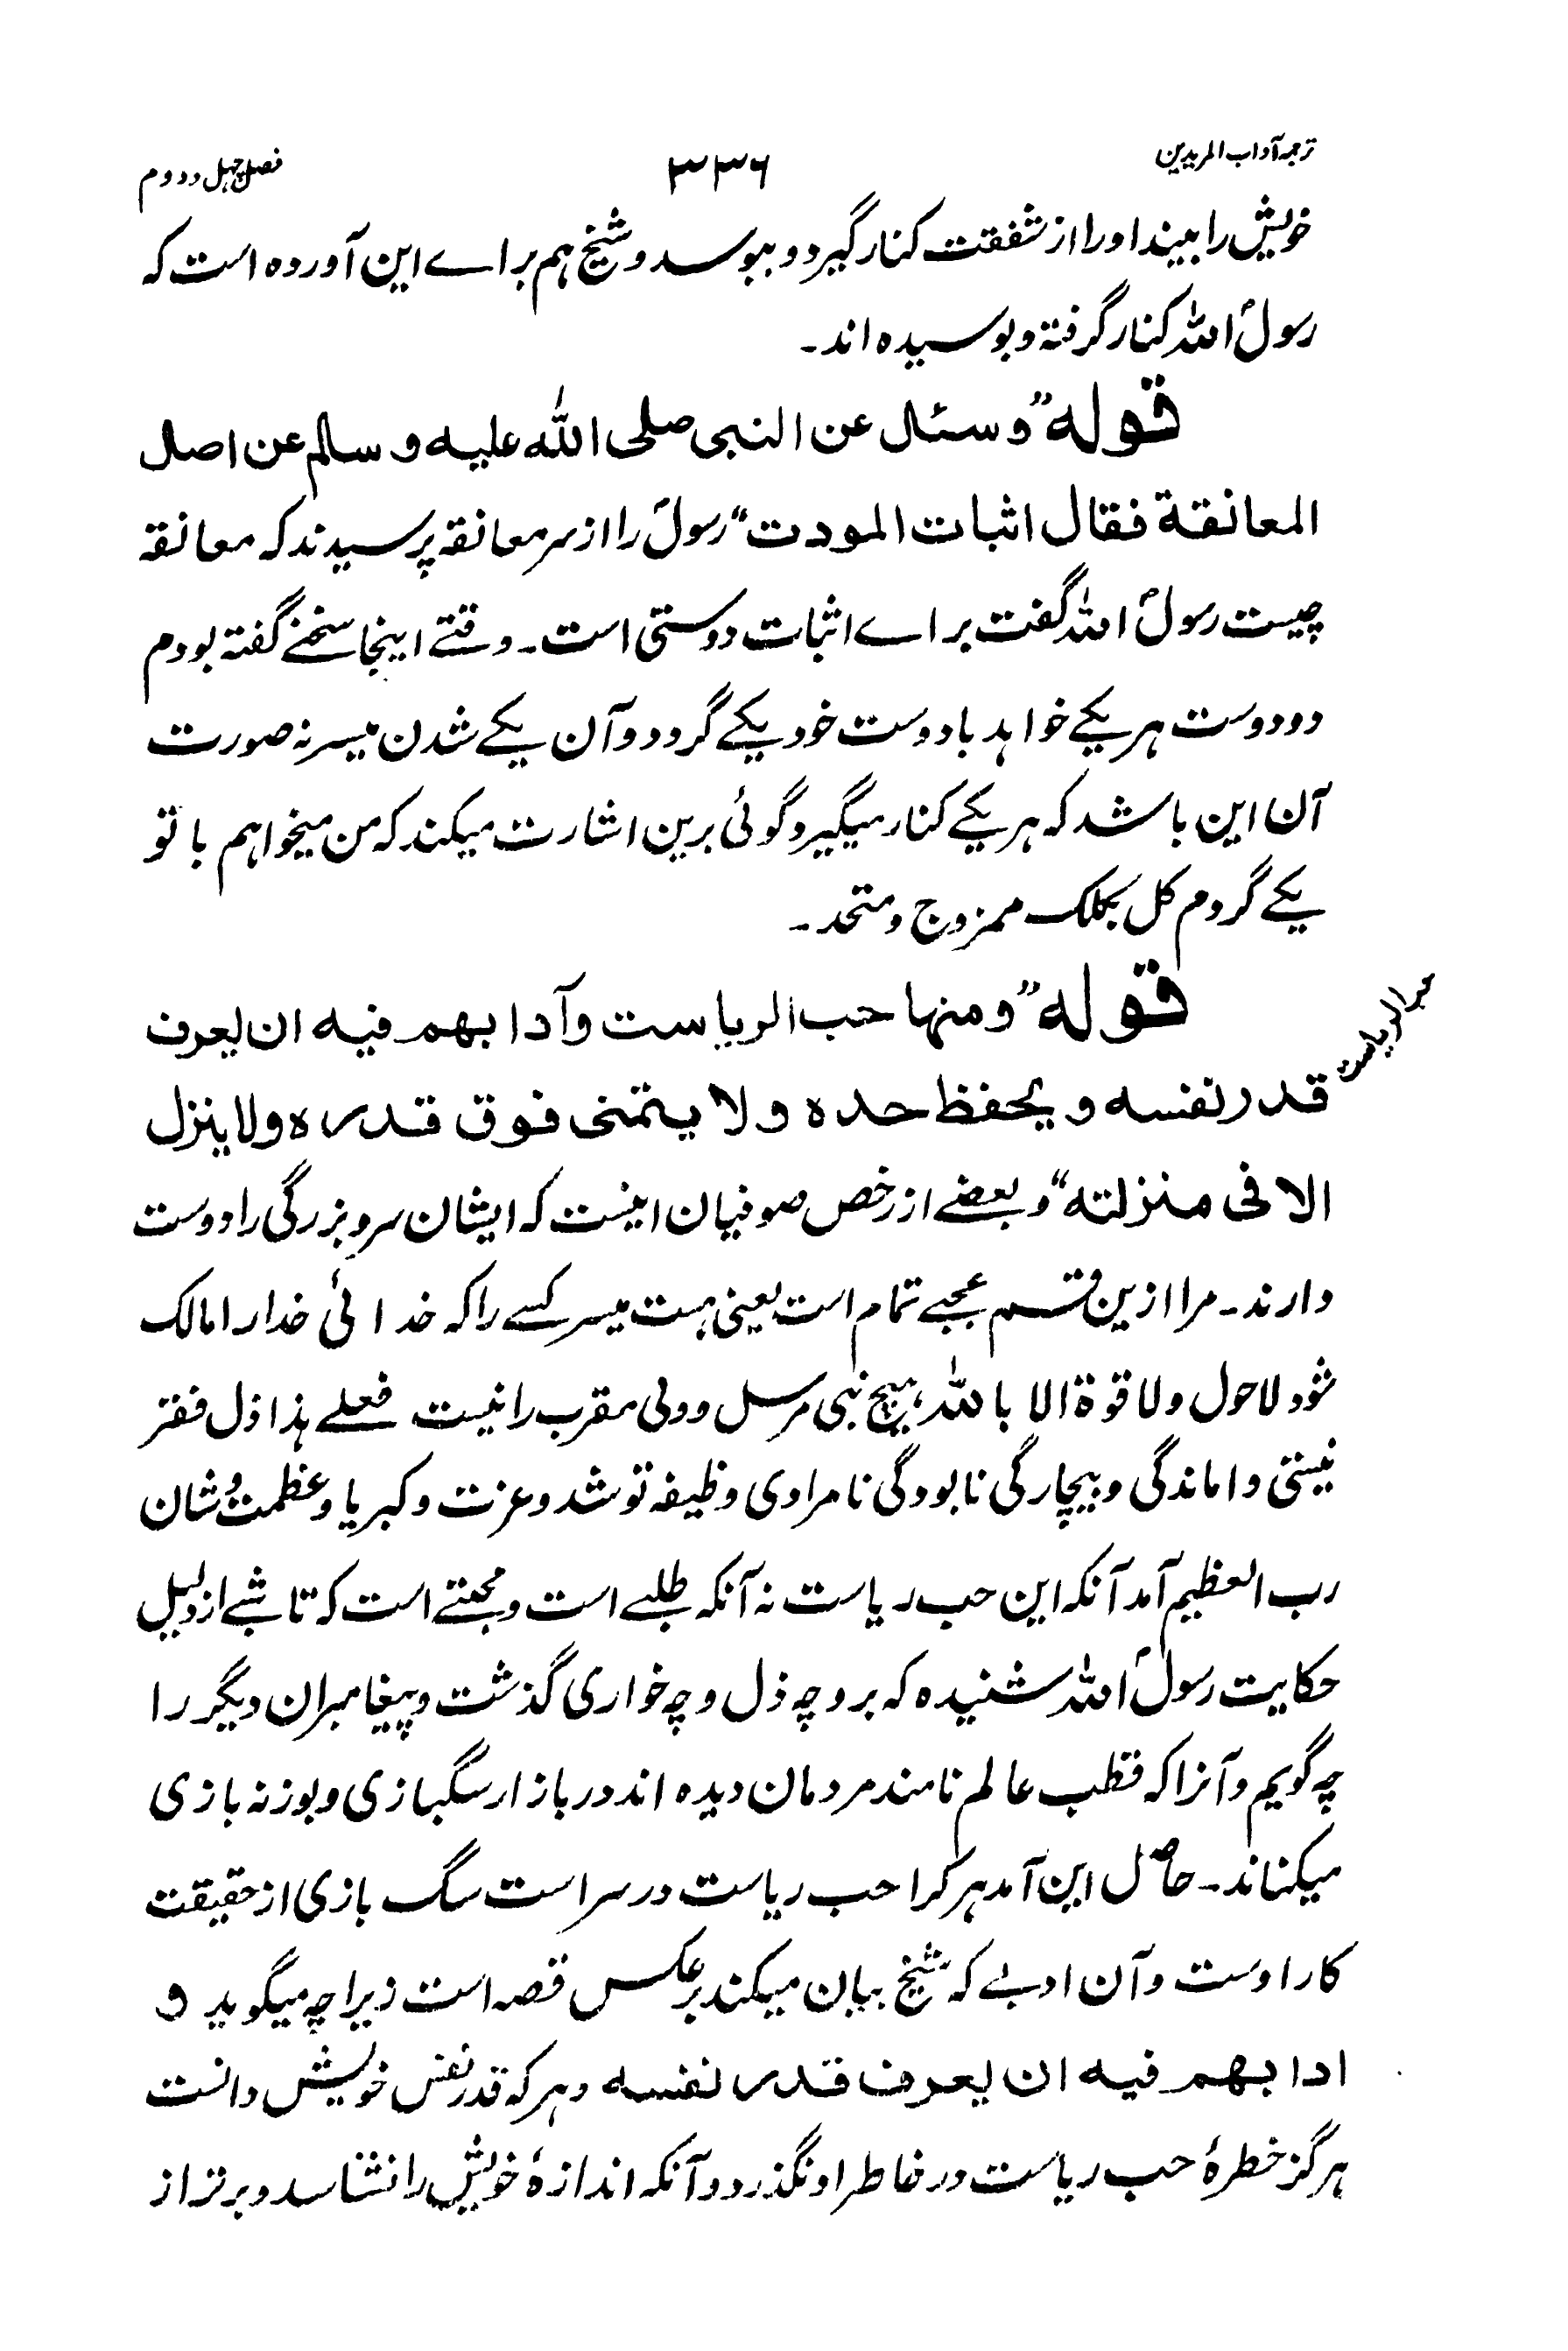 ترجمہ آداب المریدین ۳۳۶ فصل چہل و دوم
خویش را بیند او را از شفقت کنار گیرد و ببوسد و شیخ ہم براے این آوردہ است کہ
رسولؐ اللہ کنار گرفتہ و بوسیدہ اند۔
قولہ ”و سئل عن النبی صلی اللہ علیہ و سالم عن اصل
المعانقة فقال اثبات المودت“ رسولؐ را از سر معانقہ پرسیدند کہ معانقہ
چیست رسولؐ اللہ گفت براے اثبات دوستی است۔ وقتے اینجا سخنے گفتہ بودم
دو دوست ہر یکے خواہد با دوست خود یکے گردد و آن یکے شدن میسر نہ صورت
آن این باشد کہ ہر یکے کنار میگیرد گوئی برین اشارت میکند کہ من میخواہم با تو
یکے گردم کل بکلک ممزوج و متحد۔
قولہ ”و منہا حب الریاست و آدابہم فیہ ان یعرف
حب الریاست
قدر نفسہ و یحفظ حدہ و لا یتمنی فوق قدرہ ولا ینزل
الا فی منزلتہ“ و بعضے از رخص صوفیان اینست کہ ایشان سر و بزرگی را دوست
دارند۔ مرا ازین قسم عجبے تمام است یعنی ہست میسر کسے را کہ خدائی خدا را مالک
شود لا حول ولا قوة الا باللہ، ہیچ نبی مرسل و ولی مقرب را نیست فعلے ہذا ذل فقر
نیستی و اماندگی و بیچارگی نابودگی نامرادی وظیفہ تو شد و عزت و کبریا و عظمت و شان
رب العظیم آمد آنکہ این حب ریاست نہ آنکہ طلبے است و محبتے است کہ تا شبے از دلیل
حکایت رسولؐ اللہ شنیدہ کہ برو چہ ذل و چہ خواری گذشت و پیغامبران دیگر را
چہ گویم و آنرا کہ قطب عالم نامند مردمان دیدہ اند در بازار سگبازی و بوزنہ بازی
میکناند۔ حاصل این آمد ہر کرا حب ریاست در سر است سگ بازی از حقیقت
کار اوست و آن ادبے کہ شیخ بیان میکند بر عکس قصہ است زیرا چہ میگوید و
ادابہم فیہ ان یعرف قدر نفسہ و ہر کہ قدر نفس خویش دانست
ہرگز خطرۂ حب ریاست در خاطر او نگذرد و آنکہ اندازۂ خویش را نشناسد و برتر از